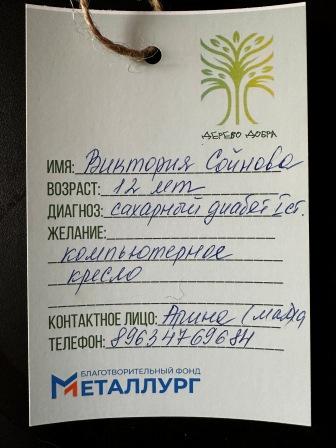 ДЕРЕВО ДОБРА
ИМЯ: Виктория Сойнова
ВОЗРАСТ: 12 лет
ДИАГНОЗ: сахарный диабет I ст.
ЖЕЛАНИЕ:
компьютерное
кресло
КОНТАКТНОЕ ЛИЦО: Арина (мама)
ТЕЛЕФОН: 89634769684
БЛАГОТВОРИТЕЛЬНЫЙ ФОНД
МЕТАЛЛУРГ